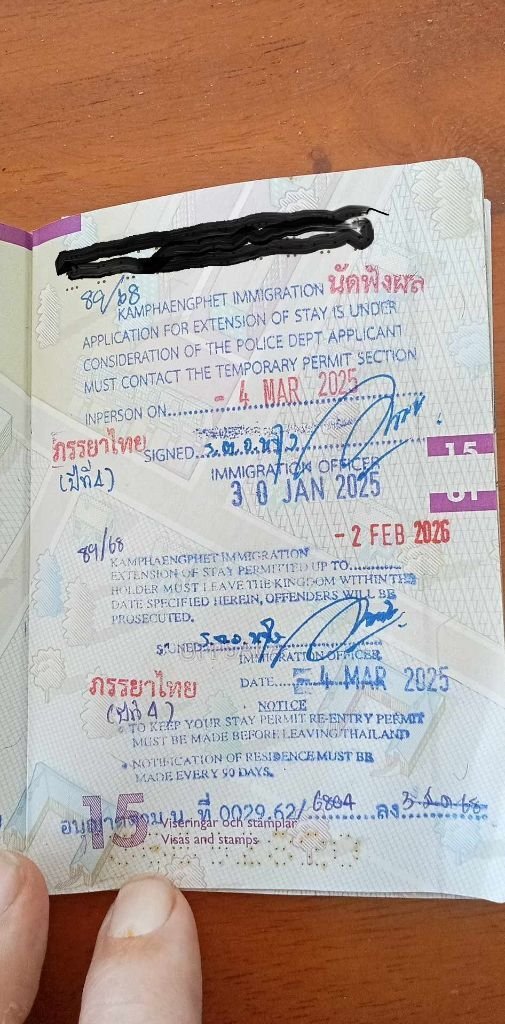 89/68
KAMPHAENGPHET IMMIGRATION นัดฟังผล
APPLICATION FOR EXTENSION OF STAY IS UNDER
CONSIDERATION OF THE POLICE DEPT APPLICANT
MUST CONTACT THE TEMPORARY PERMIT SECTION
INPERSON ON......- 4 MAR 2025
ภรรยาไทย SIGNED
(ปีที่4) IMMIGRATION OFFICER
30 JAN 2025
15
- 2 FEB 2026
89/68
KAMPHAENGPHET IMMIGRATION
EXTENSION OF STAY PERMITTED UP TO............
HOLDER MUST LEAVE THE KINGDOM WITHIN THE
DATE SPECIFIED HEREIN, OFFENDERS WILL BE
PROSECUTED.
SIGNED
IMMIGRATION OFFICER
ภรรยาไทย DATE....- 4 MAR 2025
(ปีที่4) NOTICE
• TO KEEP YOUR STAY PERMIT RE-ENTRY PERMIT
MUST BE MADE BEFORE LEAVING THAILAND
• NOTIFICATION OF RESIDENCE MUST BE
MADE EVERY 90 DAYS.
อนุญาตตาม น. ที่ 0029.62/6804 ลง
15 Viseringar och stämplar
Visas and stamps